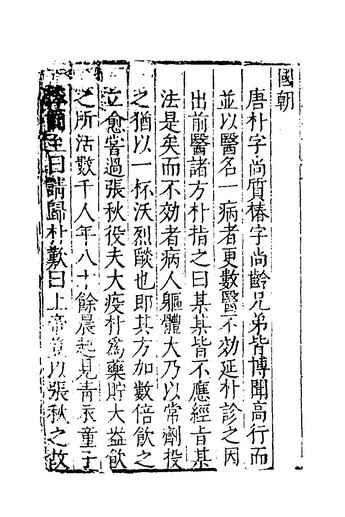 國朝
唐朴字尚質椿字尚齡兄弟皆博聞高行而
並以醫名一病者更數醫不効延朴診之因
出前醫諸方朴指之曰某某皆不應經旨某
法是矣而不効者病人軀體大乃以常劑投
之猶以一杯沃烈燄也即其方加數倍飲之
立愈嘗過張秋役夫大疫朴爲藥貯大盎飲
之所活數千人年八十餘晨起見青衣童子
至曰請歸朴歎曰上帝以張秋之故